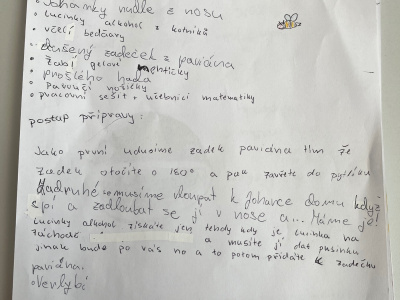 • Johanky nudle z nosu
• Lucinky alkohol z kotníků
• včelí bedčavy
• dušený zadeček z paviána
• žabí gelové mentičky
• prošlého hada
• pavoučí nožičky
• pracovní sešit + učebnici matematiky
postup přípravy:
Jako první udusíme zadek paviána tím že
zadek otočíte o 180° a pak zavřete do pytlíku
Nadruhé musíme vloupat k Johance domu když
spí a zadloubat se jí v nose a... Máme jo!
Lucinky alkohol získáte jen tehdy kdy je Lucinka na
záchodě a musíte jí dat pusinku
jinak bude po vás no a to potom přidáte k zadečku
paviána.